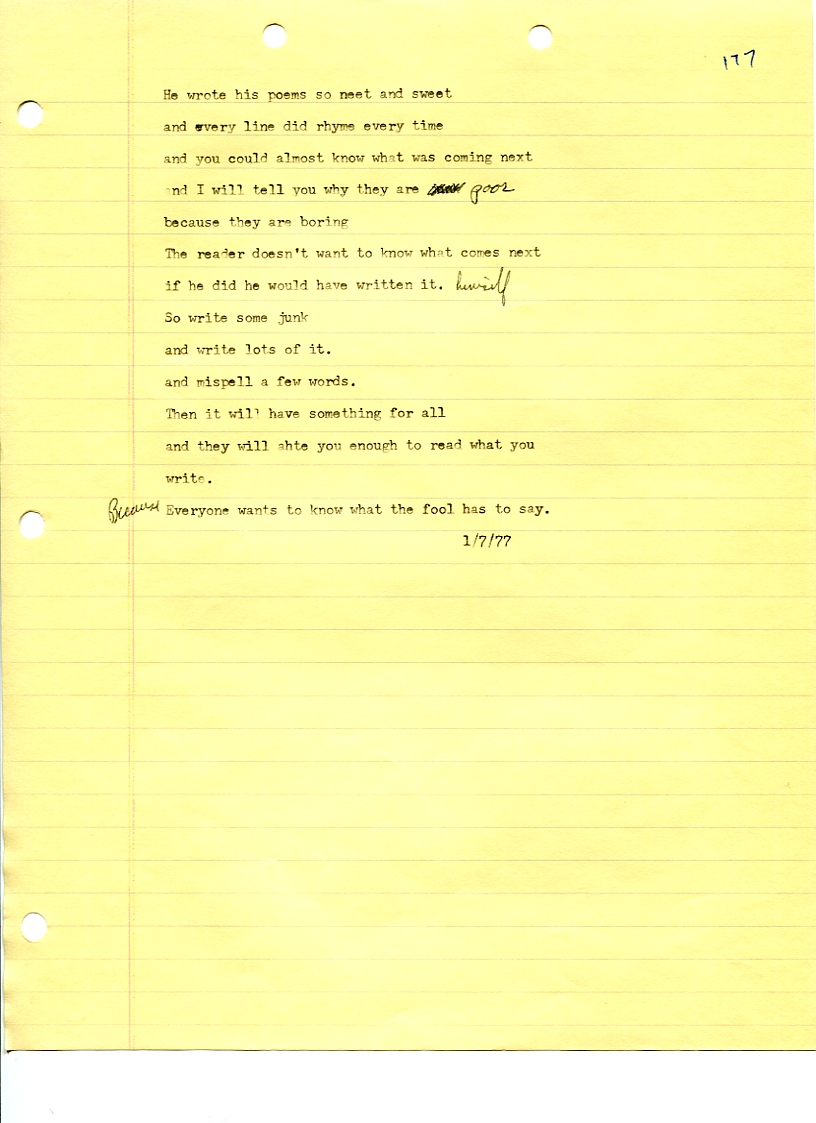 177
He wrote his poems so neet and sweet
and every line did rhyme every time
and you could almost know what was coming next
and I will tell you why they are poor
because they are boring
The reader doesn't want to know what comes next
if he did he would have written it. himself
So write some junk
and write lots of it.
and mispell a few words.
Then it will have something for all
and they will ahte you enough to read what you
write.
Because Everyone wants to know what the fool has to say.
1/7/77